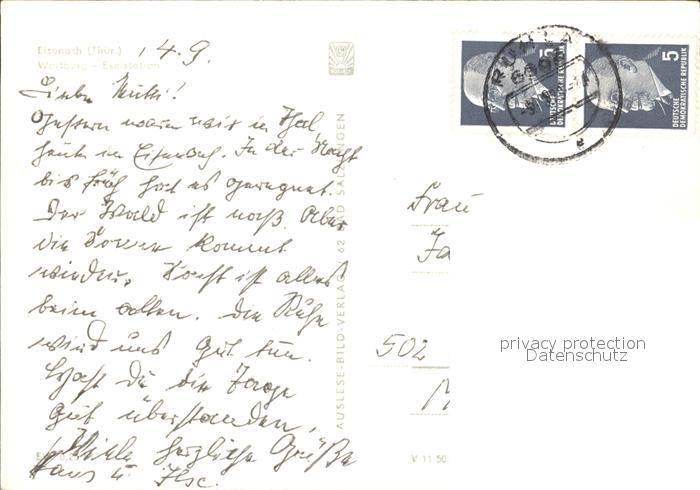 Eisenach (Thür.)
Wartburg - Eselstation
4.9.
Liebe Mutti!
Gestern waren wir in Thal,
heute in Eisenach. In der Nacht
bis früh hat es geregnet.
Der Wald ist naß. Aber
die Sonne kommt
wieder. Sonst ist alles
beim alten. Die Ruhe
wird uns gut tun.
Hast Du die Tage
gut überstanden,
Viele herzliche Grüße
Hans u. Ilse.
AUSLESE-BILD-VERLAG 62 BAD SALZUNGEN
V 11 50
RUHLA
5
DEUTSCHE
DEMOKRATISCHE REPUBLIK
5
DEUTSCHE
DEMOKRATISCHE REPUBLIK
Frau
502
privacy protection
Datenschutz